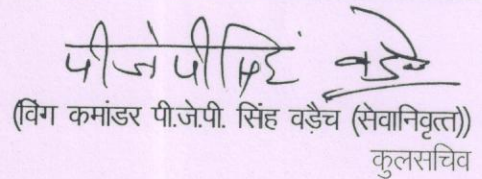 पीजेपीसिंह वड़ैच
(विंग कमांडर पी.जे.पी. सिंह वड़ैच (सेवानिवृत्त))
कुलसचिव